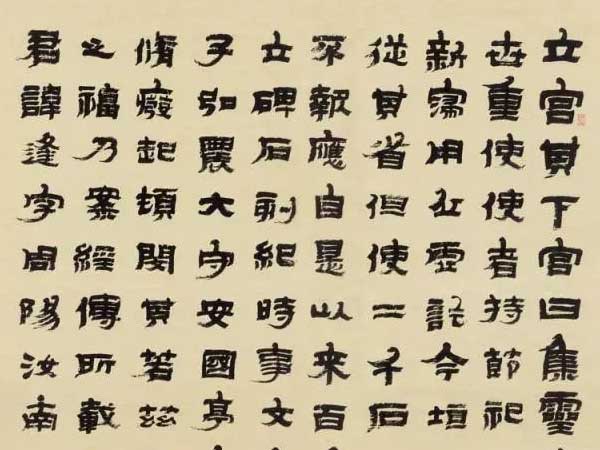 立宮其下宮曰集靈
世重使使者持節祀
新寖用丘虛託今垣
從其省但使二千石
不報應自是以來百
立碑石刻紀時事文
子弘農大守安國亭
脩廢起頓閔其若茲
之福乃案經傳所載
君諱逢字周陽汝南